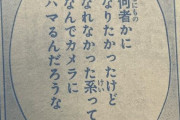 何者かに
なりたかったけど
なれなかった系って
なんでカメラに
ハマるんだろうな